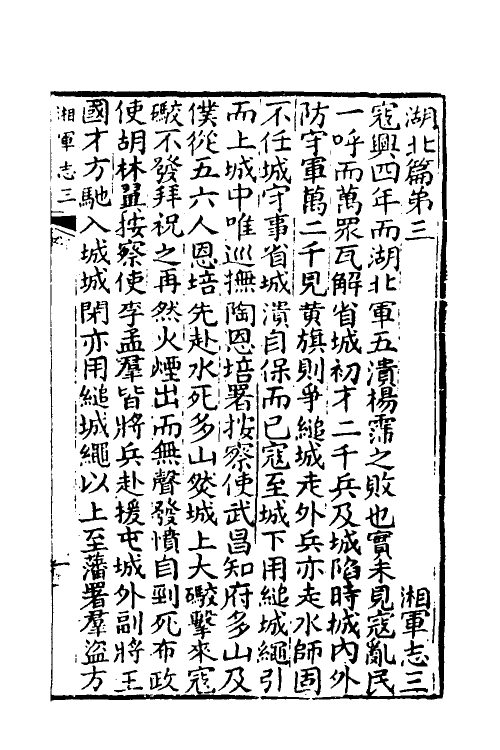 湖北篇第三　湘軍志三
寇興四年而湖北軍五潰楊霈之敗也實未見寇亂民
一呼而萬眾瓦解省城初才二千兵及城陷時城內外
防守軍萬二千見黄旗則爭縋城走外兵亦走水師固
不任城守事省城潰自保而已寇至城下用縋城繩引
而上城中唯巡撫陶恩培署按察使武昌知府多山及
僕從五六人恩培先赴水死多山從城上大礮擊來寇
礮不發拜祝之再然火煙出而無聲發憤自剄死布政
使胡林翼按察使李孟羣皆將兵赴援屯城外副將王
國才方馳入城城閉亦用縋城繩以上至藩署羣盜方
湘軍志三
一